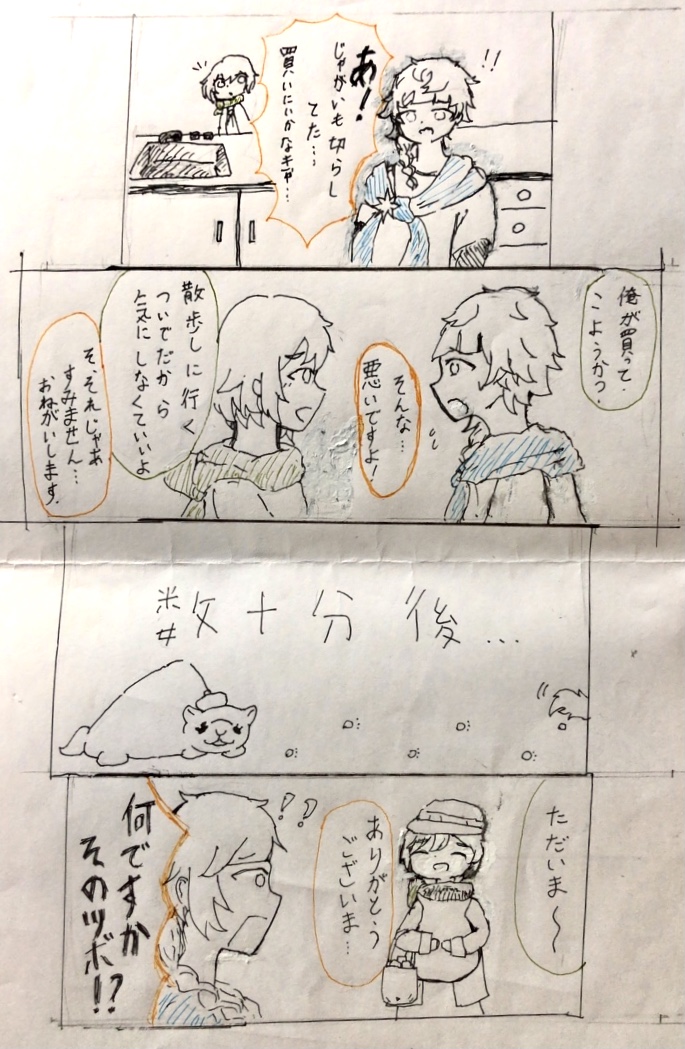 !!
あ!
じゃがいも切らし
てた…
買いにいかなきゃ…
俺が買って
こようか?
そんな…
悪いですよ!
散歩しに行く
ついでだから
気にしなくていいよ
そ、それじゃあ
すみません…
おねがいします。
数十分後…
ただいま〜
ありがとう
ございま…
??
何ですか
そのツボ!?